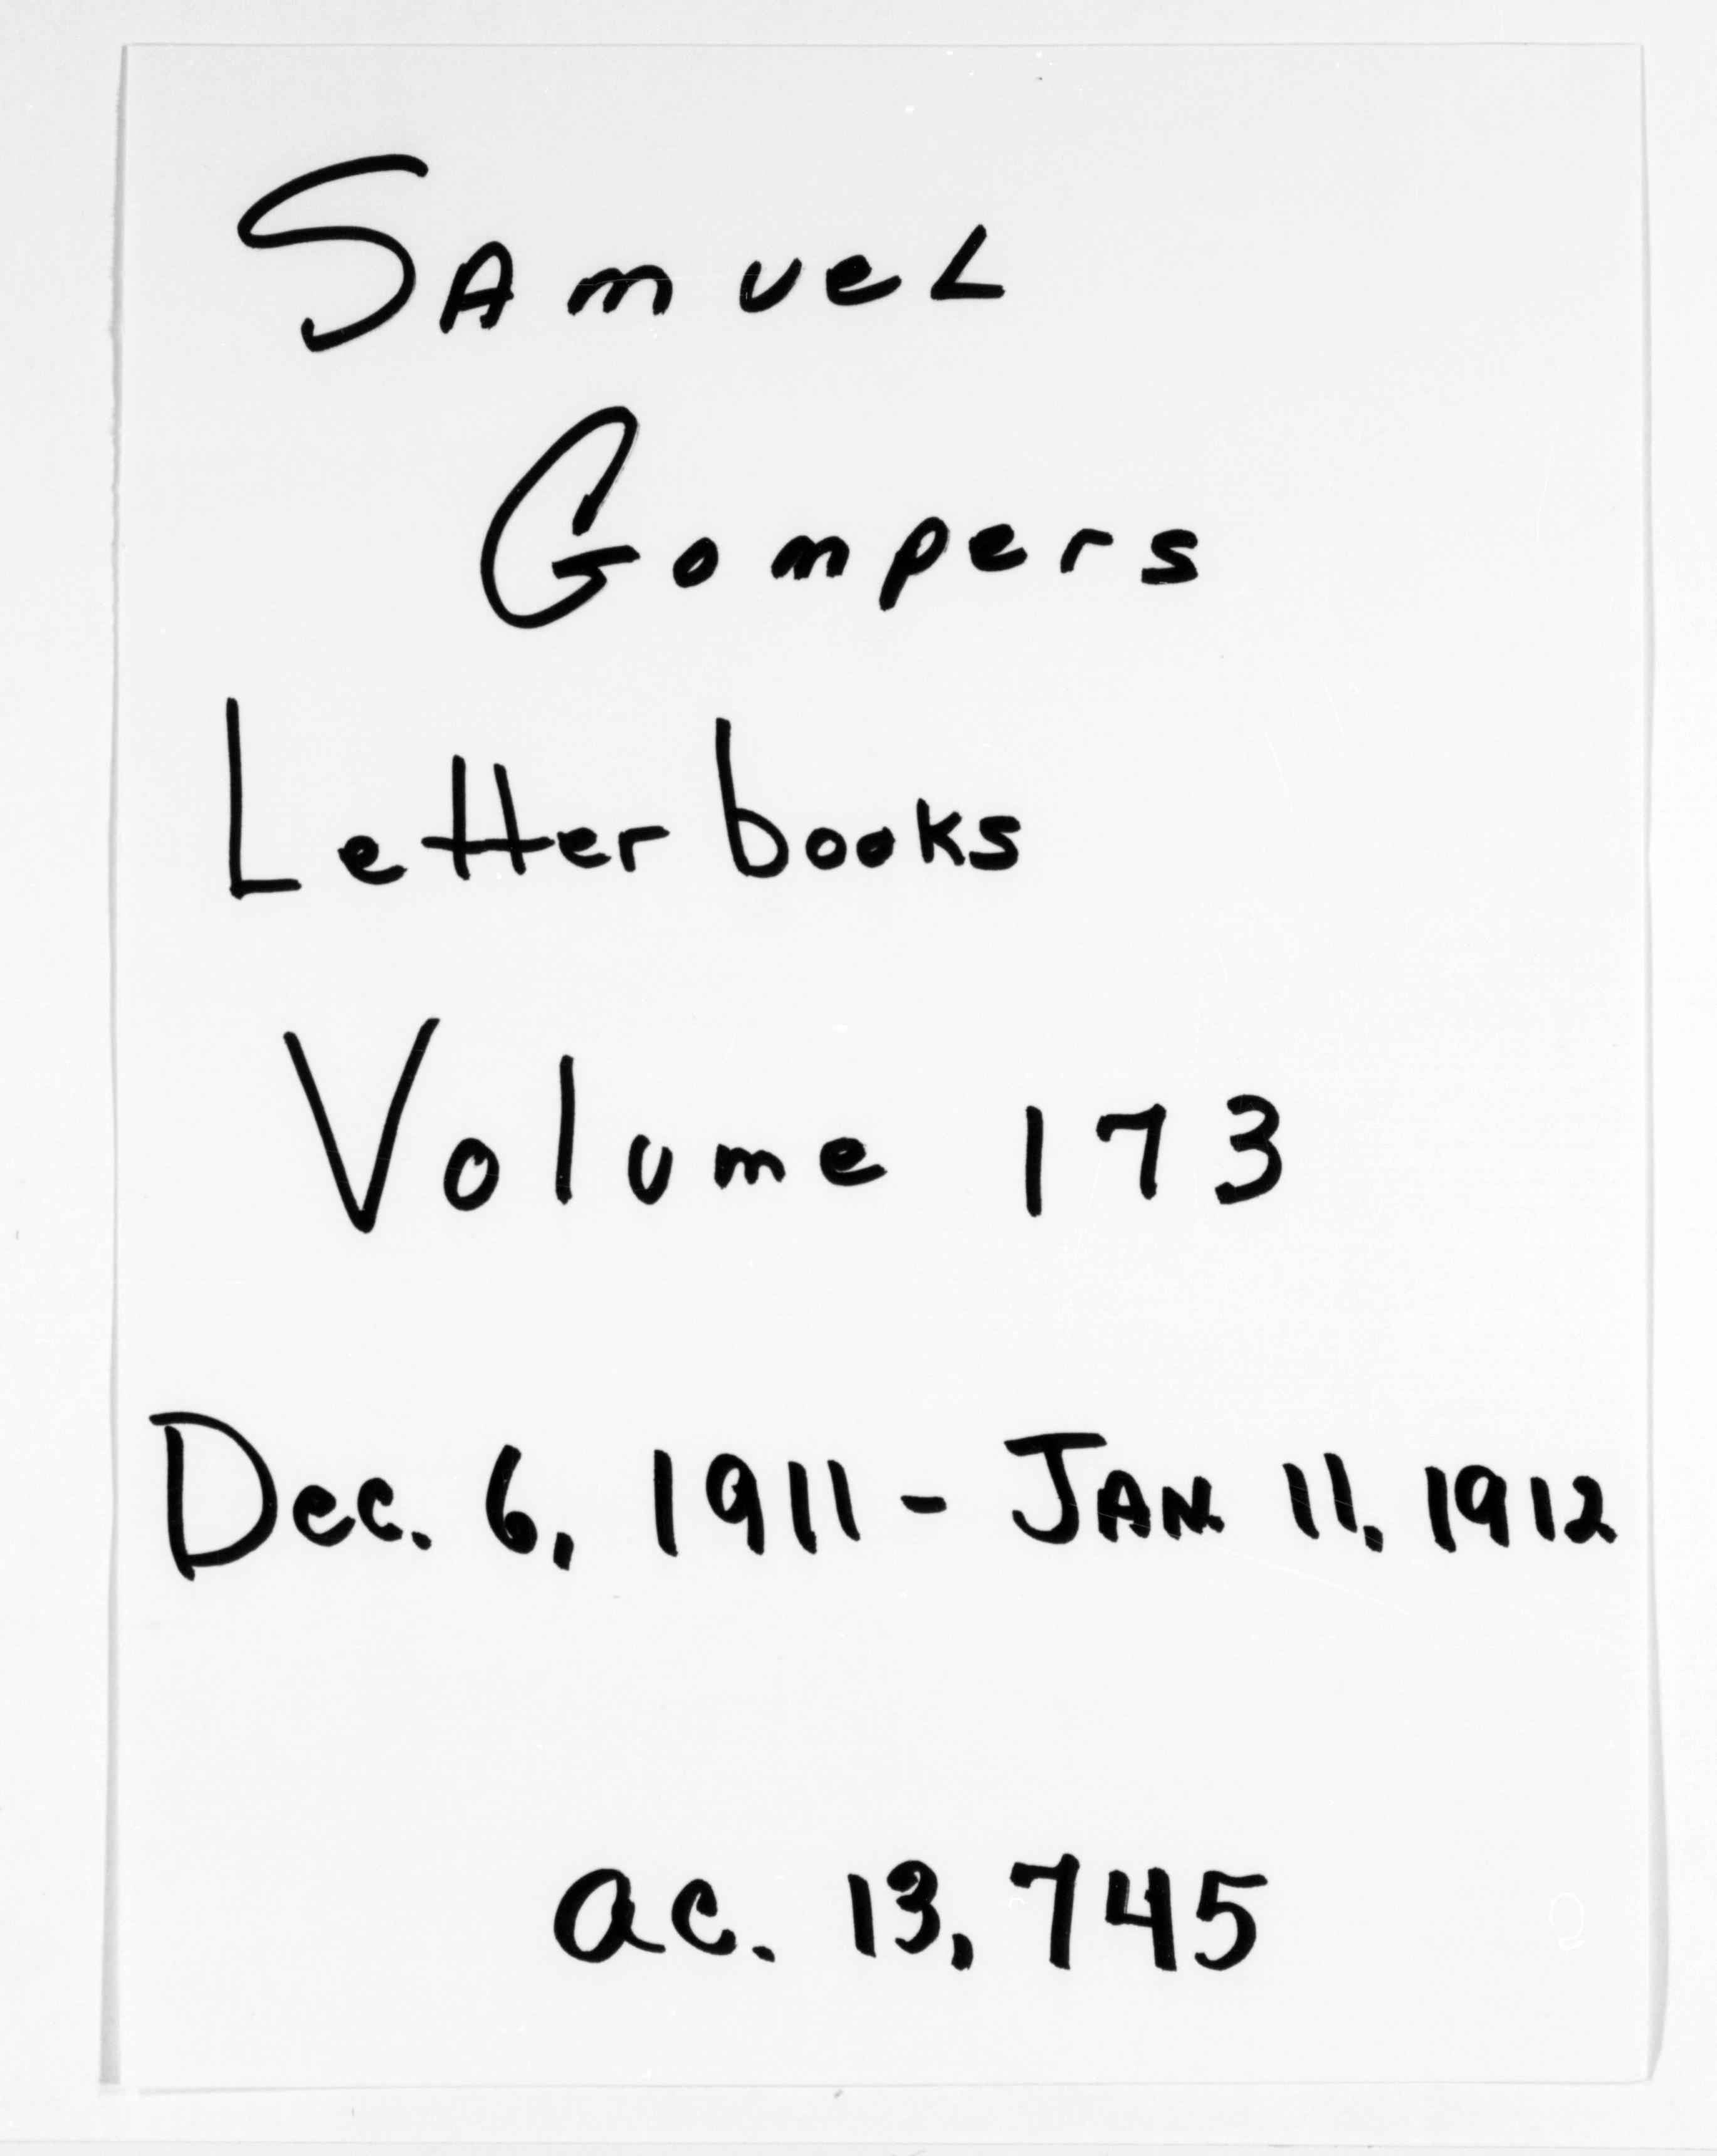 Samuel
Gompers
Letterbooks
Volume 173
Dec. 6, 1911 - Jan. 11, 1912
ac. 13,745